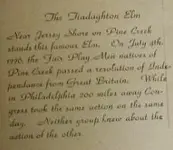 The Tiadaghton Elm
Near Jersey Shore on Pine Creek
stands this famous Elm. On July 4th,
1776, the Fair Play Men natives of
Pine Creek passed a resolution of Inde-
pendance from Great Britain. While
in Philadelphia 200 miles away Con-
gress took the same action on the same
day. Neither group knew about the
action of the other.